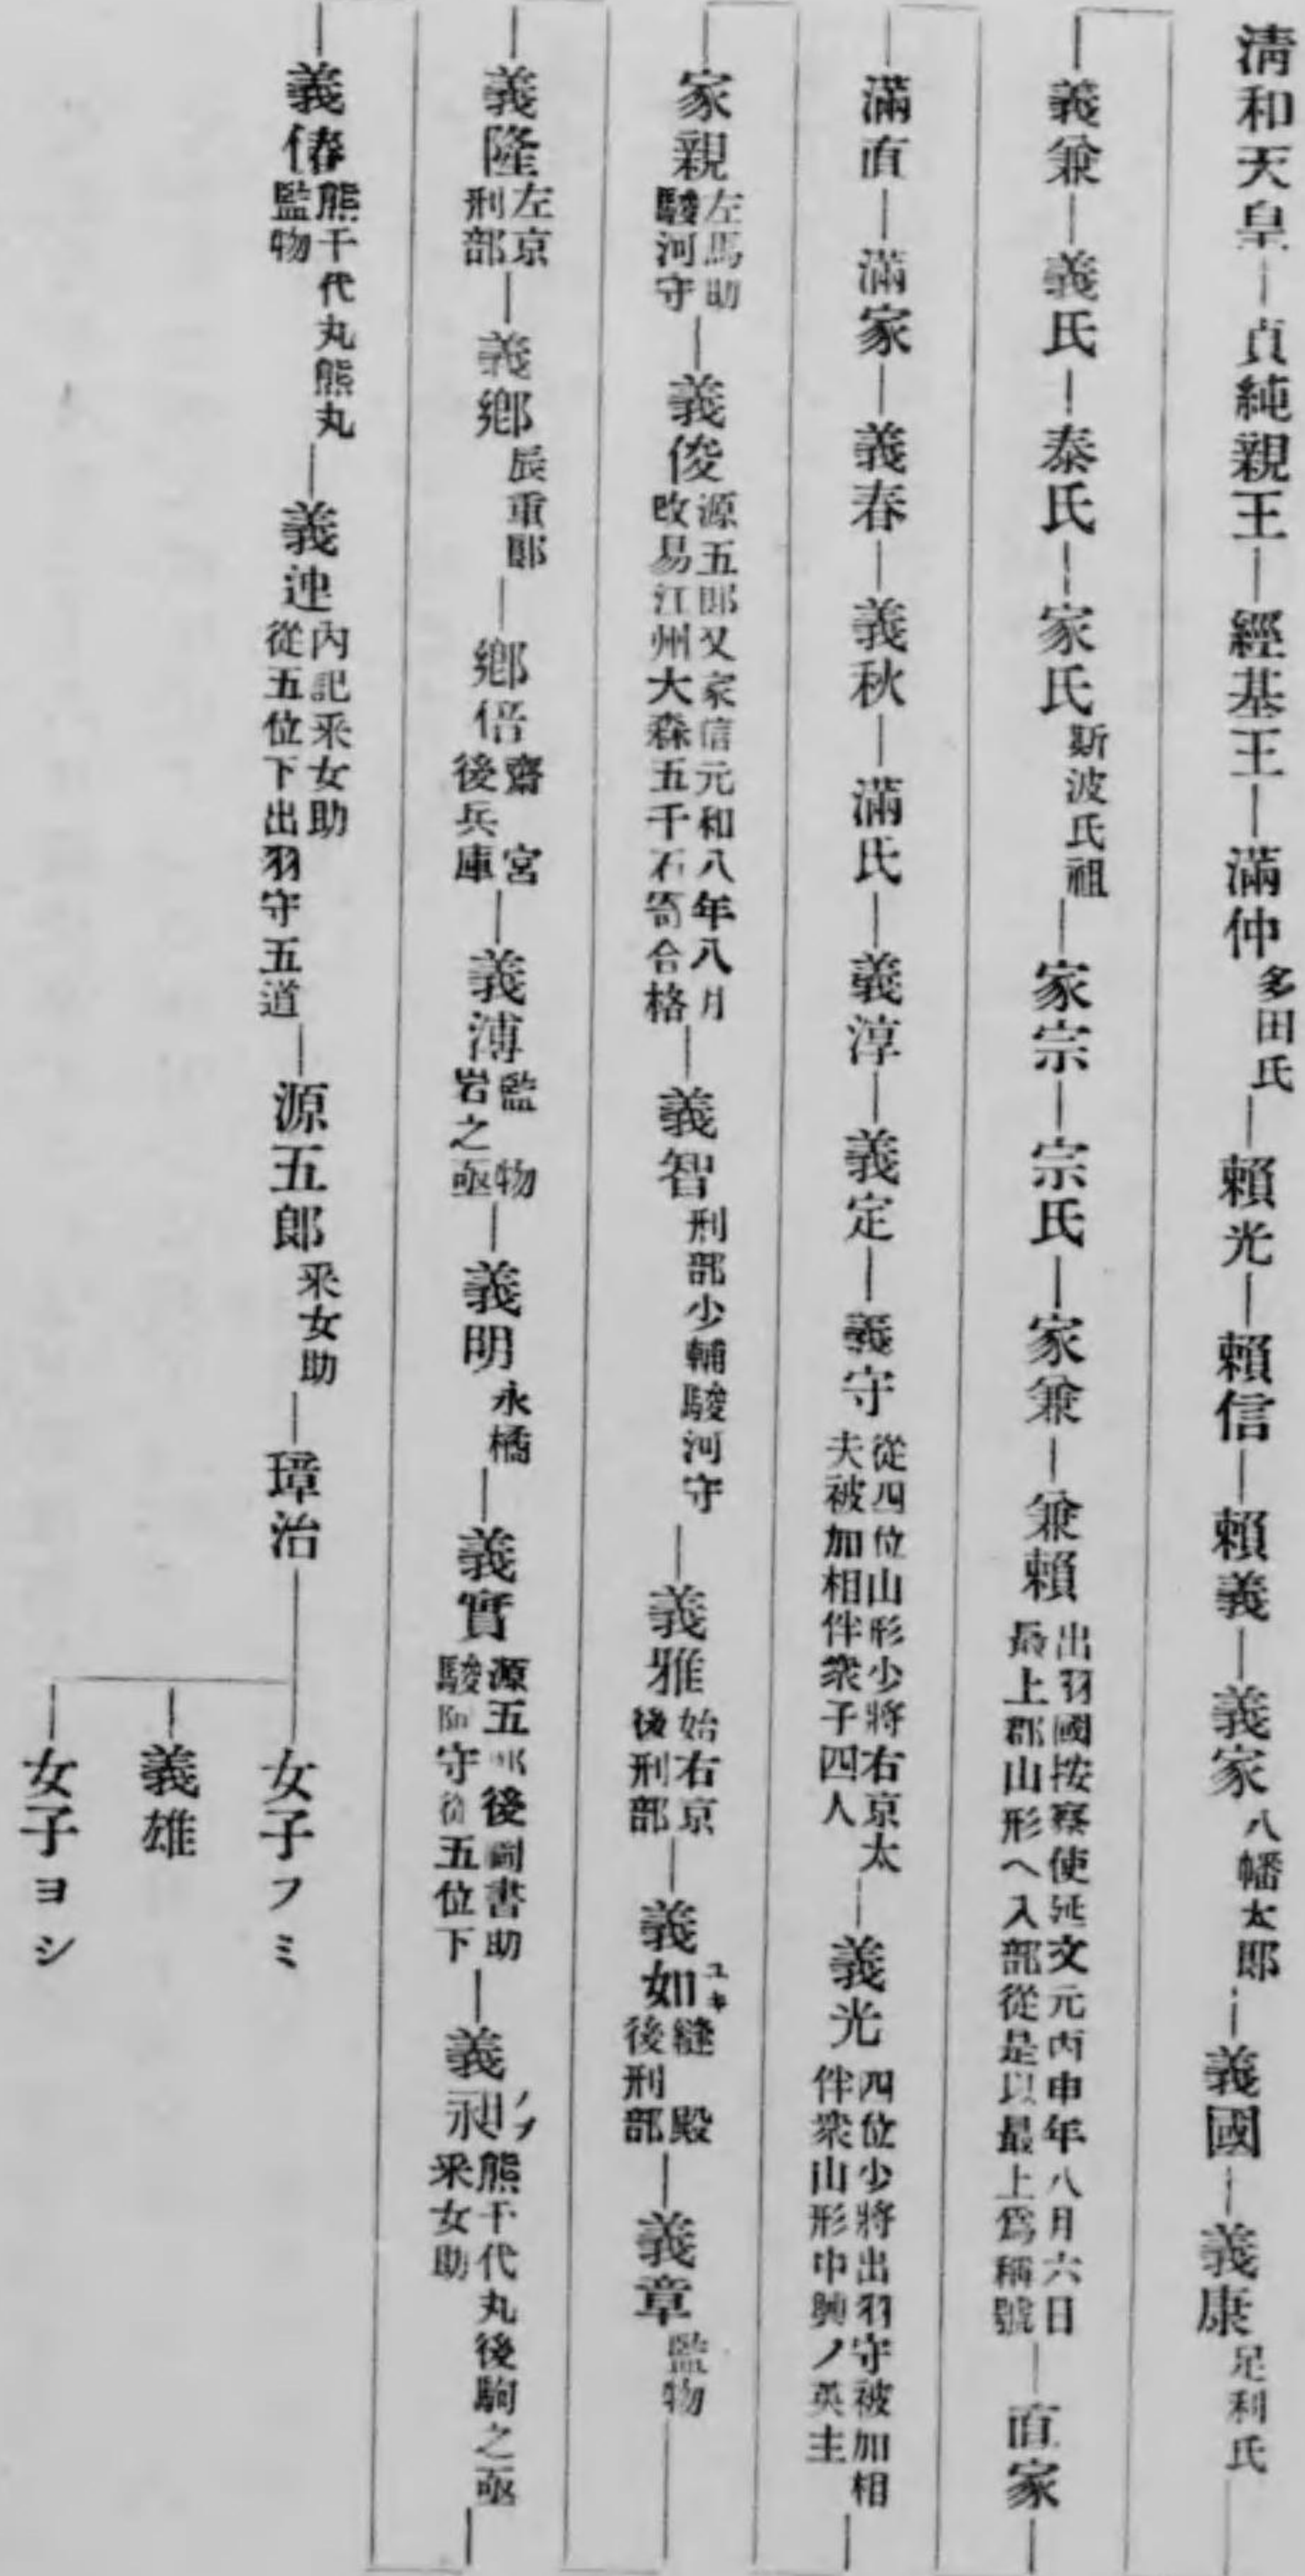 清和天皇―貞純親王―經基王―滿仲多田氏―賴光―賴信―賴義―義家八幡太郎―義國―義康足利氏
―義兼―義氏―泰氏―家氏斯波氏祖―家宗―宗氏―家兼―兼賴出羽國按察使延文元丙申年八月六日最上郡山形ヘ入部從是以最上爲稱號―直家
―滿直―滿家―義春―義秋―滿氏―義淳―義定―義守從四位山形少將右京太夫被加相伴衆子四人―義光四位少將出羽守被加相伴衆山形中興ノ英主
―家親左馬助駿河守―義俊源五郎又家信元和八年八月改易江州大森五千石寄合格―義智刑部少輔駿河守―義雅始右京後刑部―義如ユキ縫殿後刑部―義章監物
―義隆左京刑部―義鄕辰重郎―鄕倍齋宮後兵庫―義溥監物岩之亟―義明永橘―義實源五郎後圖書助駿河守從五位下―義昶熊千代丸後駒之亟釆女助
―義偆熊千代丸熊丸監物―義連內記釆女助從五位下出羽守五道―源五郎釆女助―璋治
女子フミ
義雄
女子ヨシ